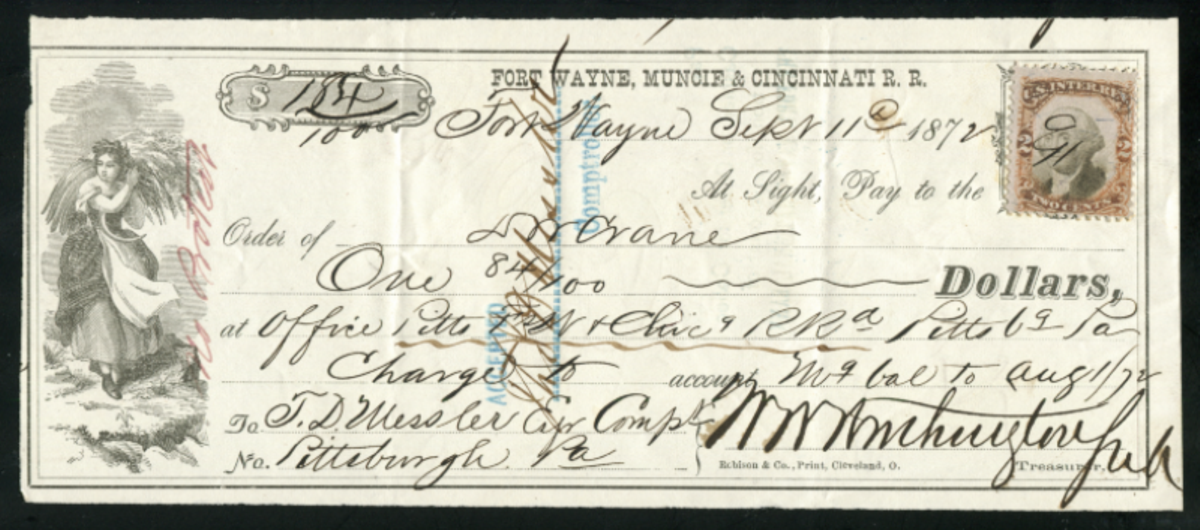 FORT WAYNE, MUNCIE & CINCINNATI R. R.
$ 1 84/100
Fort Wayne Sept 11th 1872
U.S. INTER. REV.
2 2
TWO CENTS
At Sight, Pay to the
Order of Crane
One 84/100 Dollars,
at Office Pitts Ft W & Chicº R Rd Pittsbg Pa
Charge to account Mg bal to Aug 1/72
To T. D. Messler Esqr Compt
No. Pittsburgh Pa
Robison & Co., Print, Cleveland, O.
Treasurer.
ACCEPTED
Comptroller